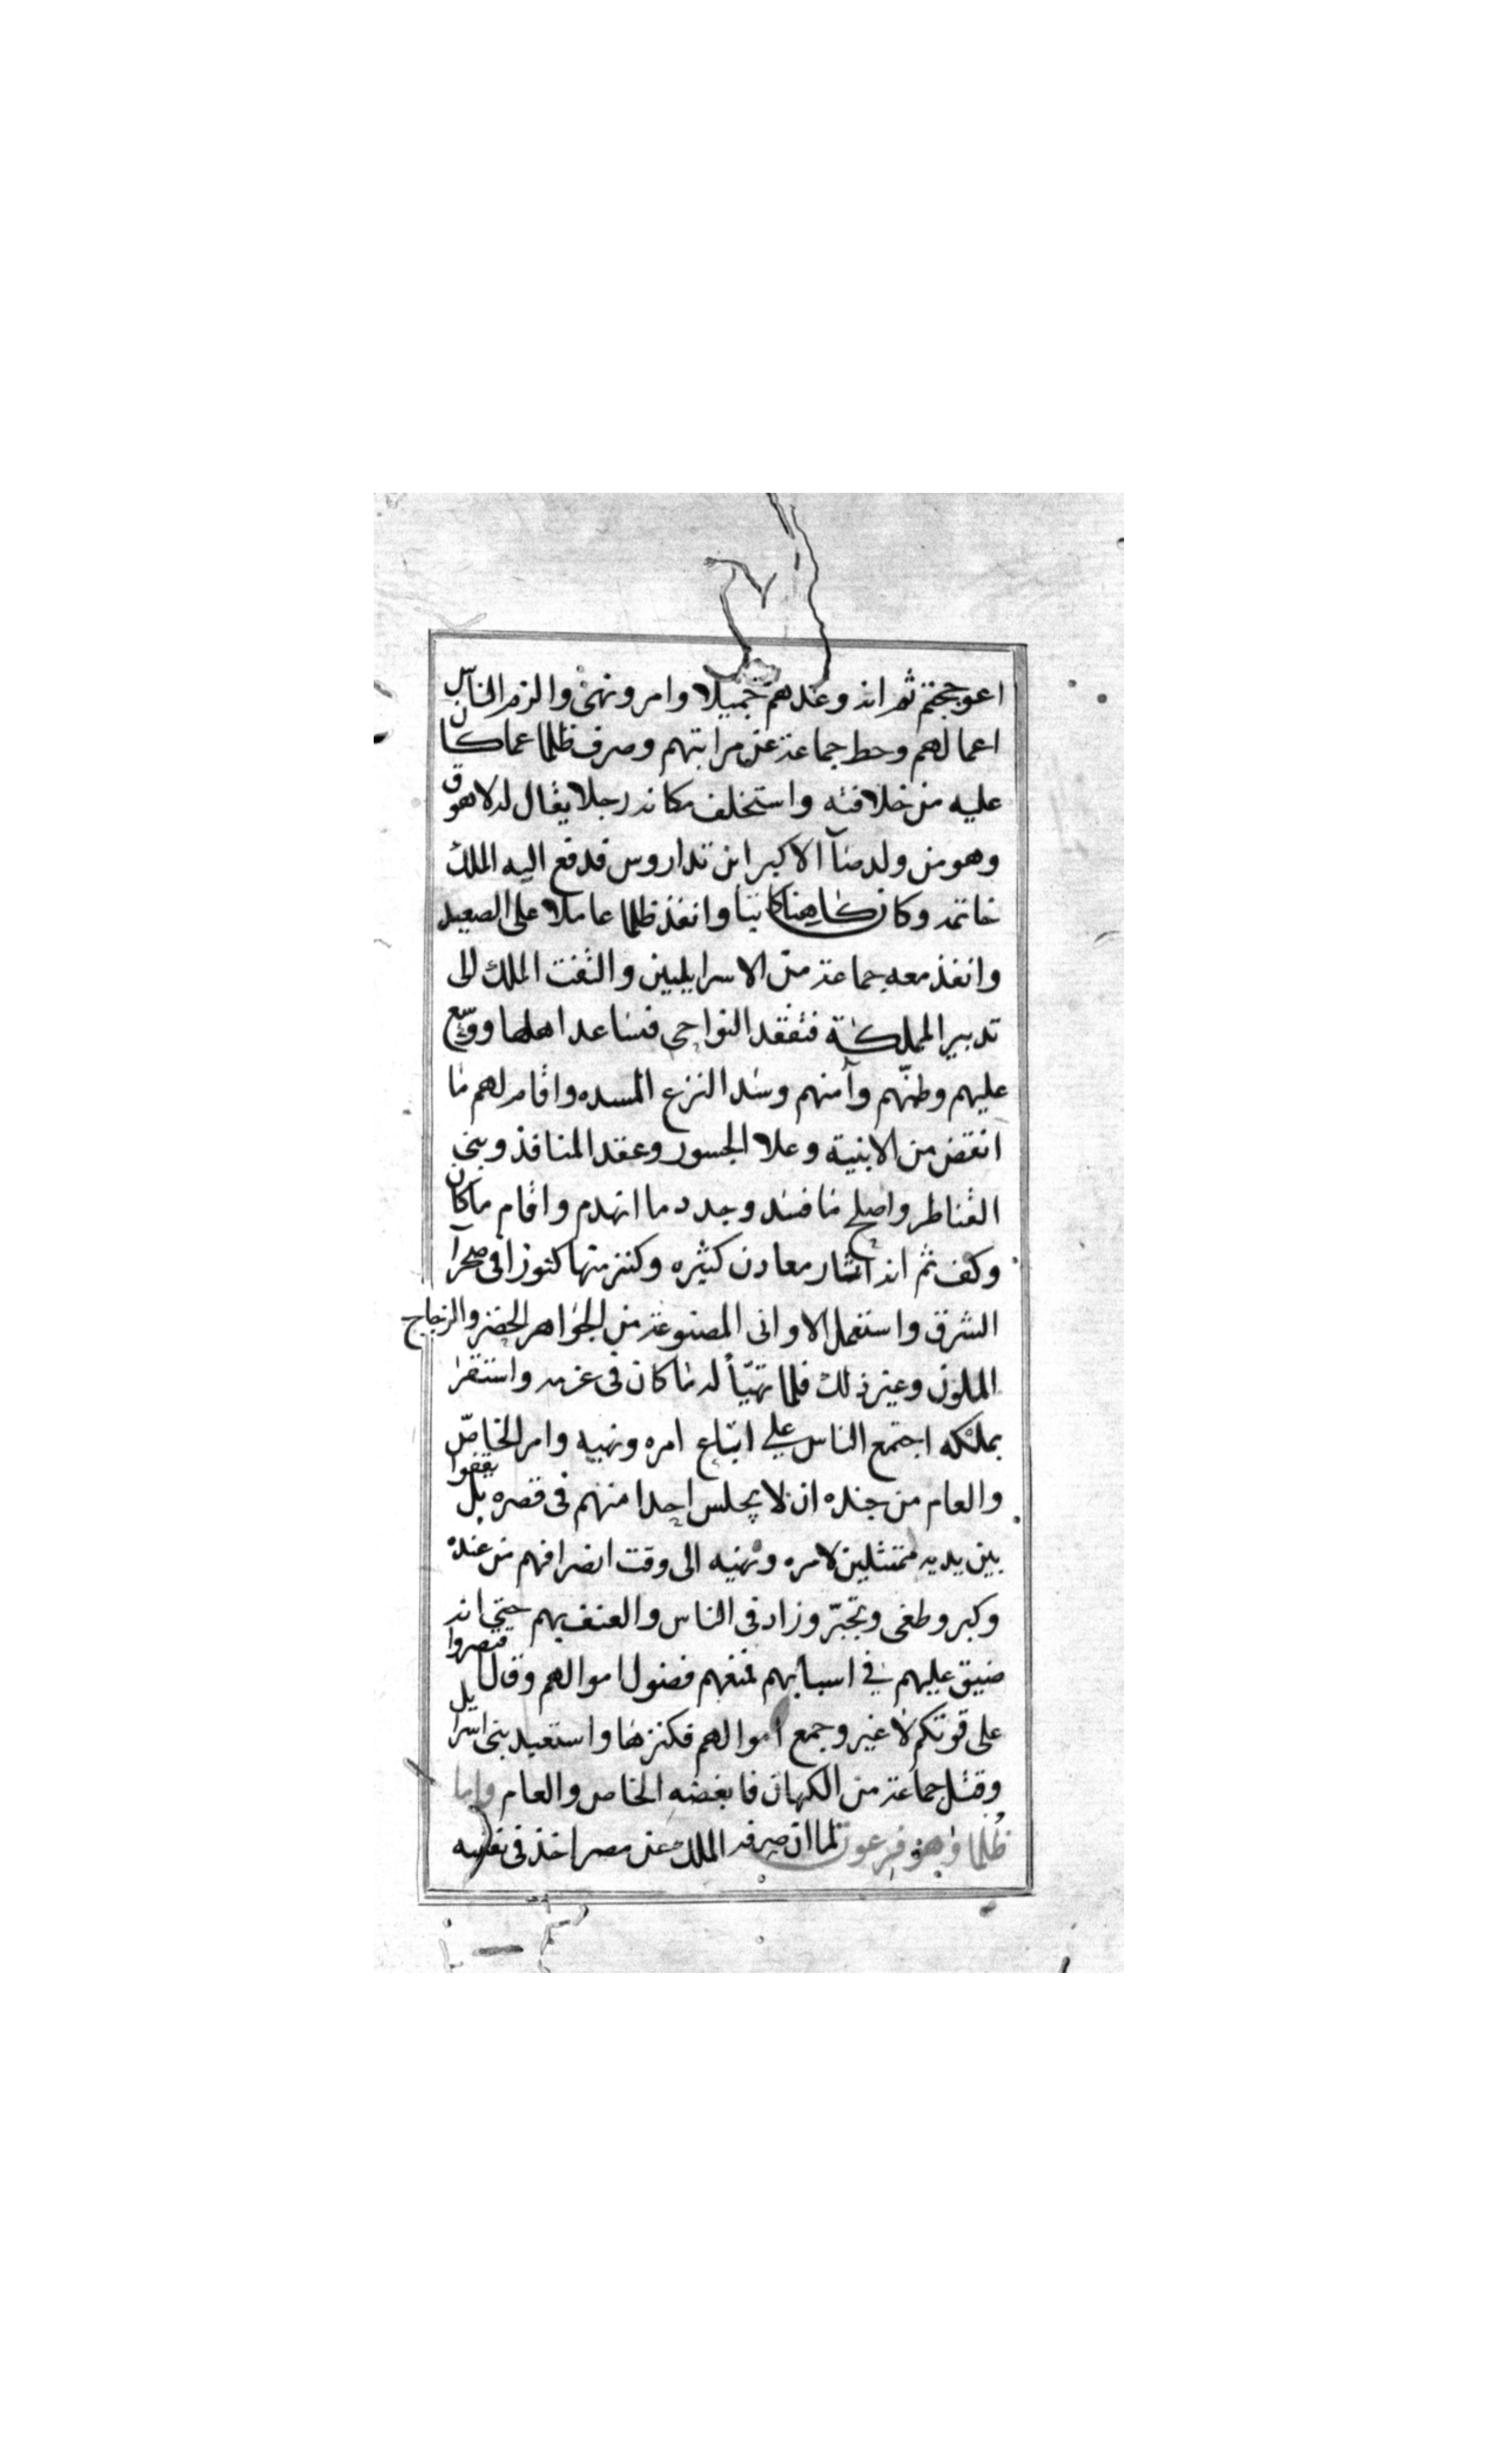 اعوججتم ثم انه وعدهم جميلا وامر ونهى والزم الناس
اعمالهم وحط جماعة عن مراتبهم وصرف ظلما عما كان
عليه من خلافته واستخلف مكانه رجلا يقال له لاهوق
وهو من ولد صا الاكبر ابن تداروس فدفع اليه الملك
خاتمه وكان كاهنا كاتبا وانفذ ظلما عاملا على الصعيد
وانفذ معه جماعة من الاسرايليين والتفت الملك الى
تدبير المملكة فتفقد النواحى فساعد اهلها ووسع
عليهم وطمنهم وآمنهم وسد النزع المسده واقام لهم ما
انقض من الابنية وعلا الجسور وعقد المنافذ وبنى
القناطر واصلح ما فسد وجدد ما انهدم واقام ما كان
وكف ثم انه اشار معادن كثيره وكنز منها كنوزا فى صحرآ
الشرق واستعمل الاوانى المصنوعة من الجواهر الخضر والزجاج
الملون وغير ذلك فلما تهيأ له ما كان فى عزمه واستقر
بملكه اجتمع الناس على اتباع امره ونهيه وامر الخاص
والعام من جنده ان لا يجلس احدا منهم فى قصره بل يقفوا
بين يديه ممتثلين لامره ونهيه الى وقت انصرافهم من عنده
وكبر وطغى وتجبر وزاد فى الناس والعنف بهم حتى انه
ضيق عليهم فى اسبابهم فمنعهم فضول اموالهم وقال اقتصروا
على قوتكم لا غير وجمع اموالهم فكنزها واستعبد بنى اسرايل
وقتل جماعة من الكهان فابغضه الخاص والعام واما
ظلما وهو فرعون لما ان صرفه الملك عن مصر اخذ فى نفسه